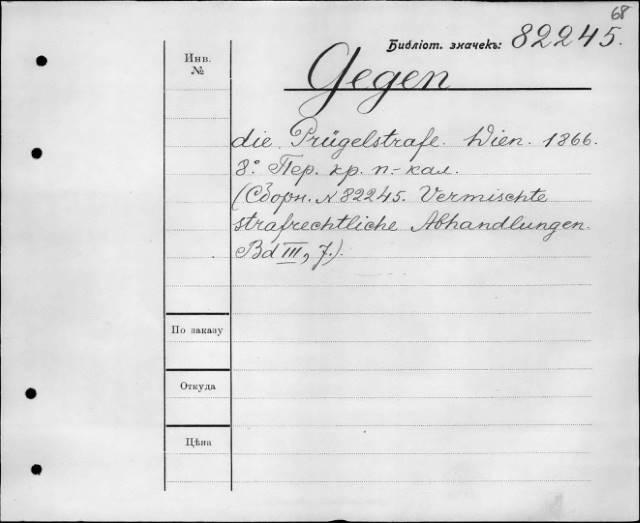 68
Библіот. значекъ: 82245.
Инв.
№
Gegen
die Prügelstrafe. Wien. 1866.
8° Пер. кр. п.-кал.
(Сборн. № 82245. Vermischte
strafrechtliche Abhandlungen.
Bd III, 7.).
По заказу
Откуда
Цѣна